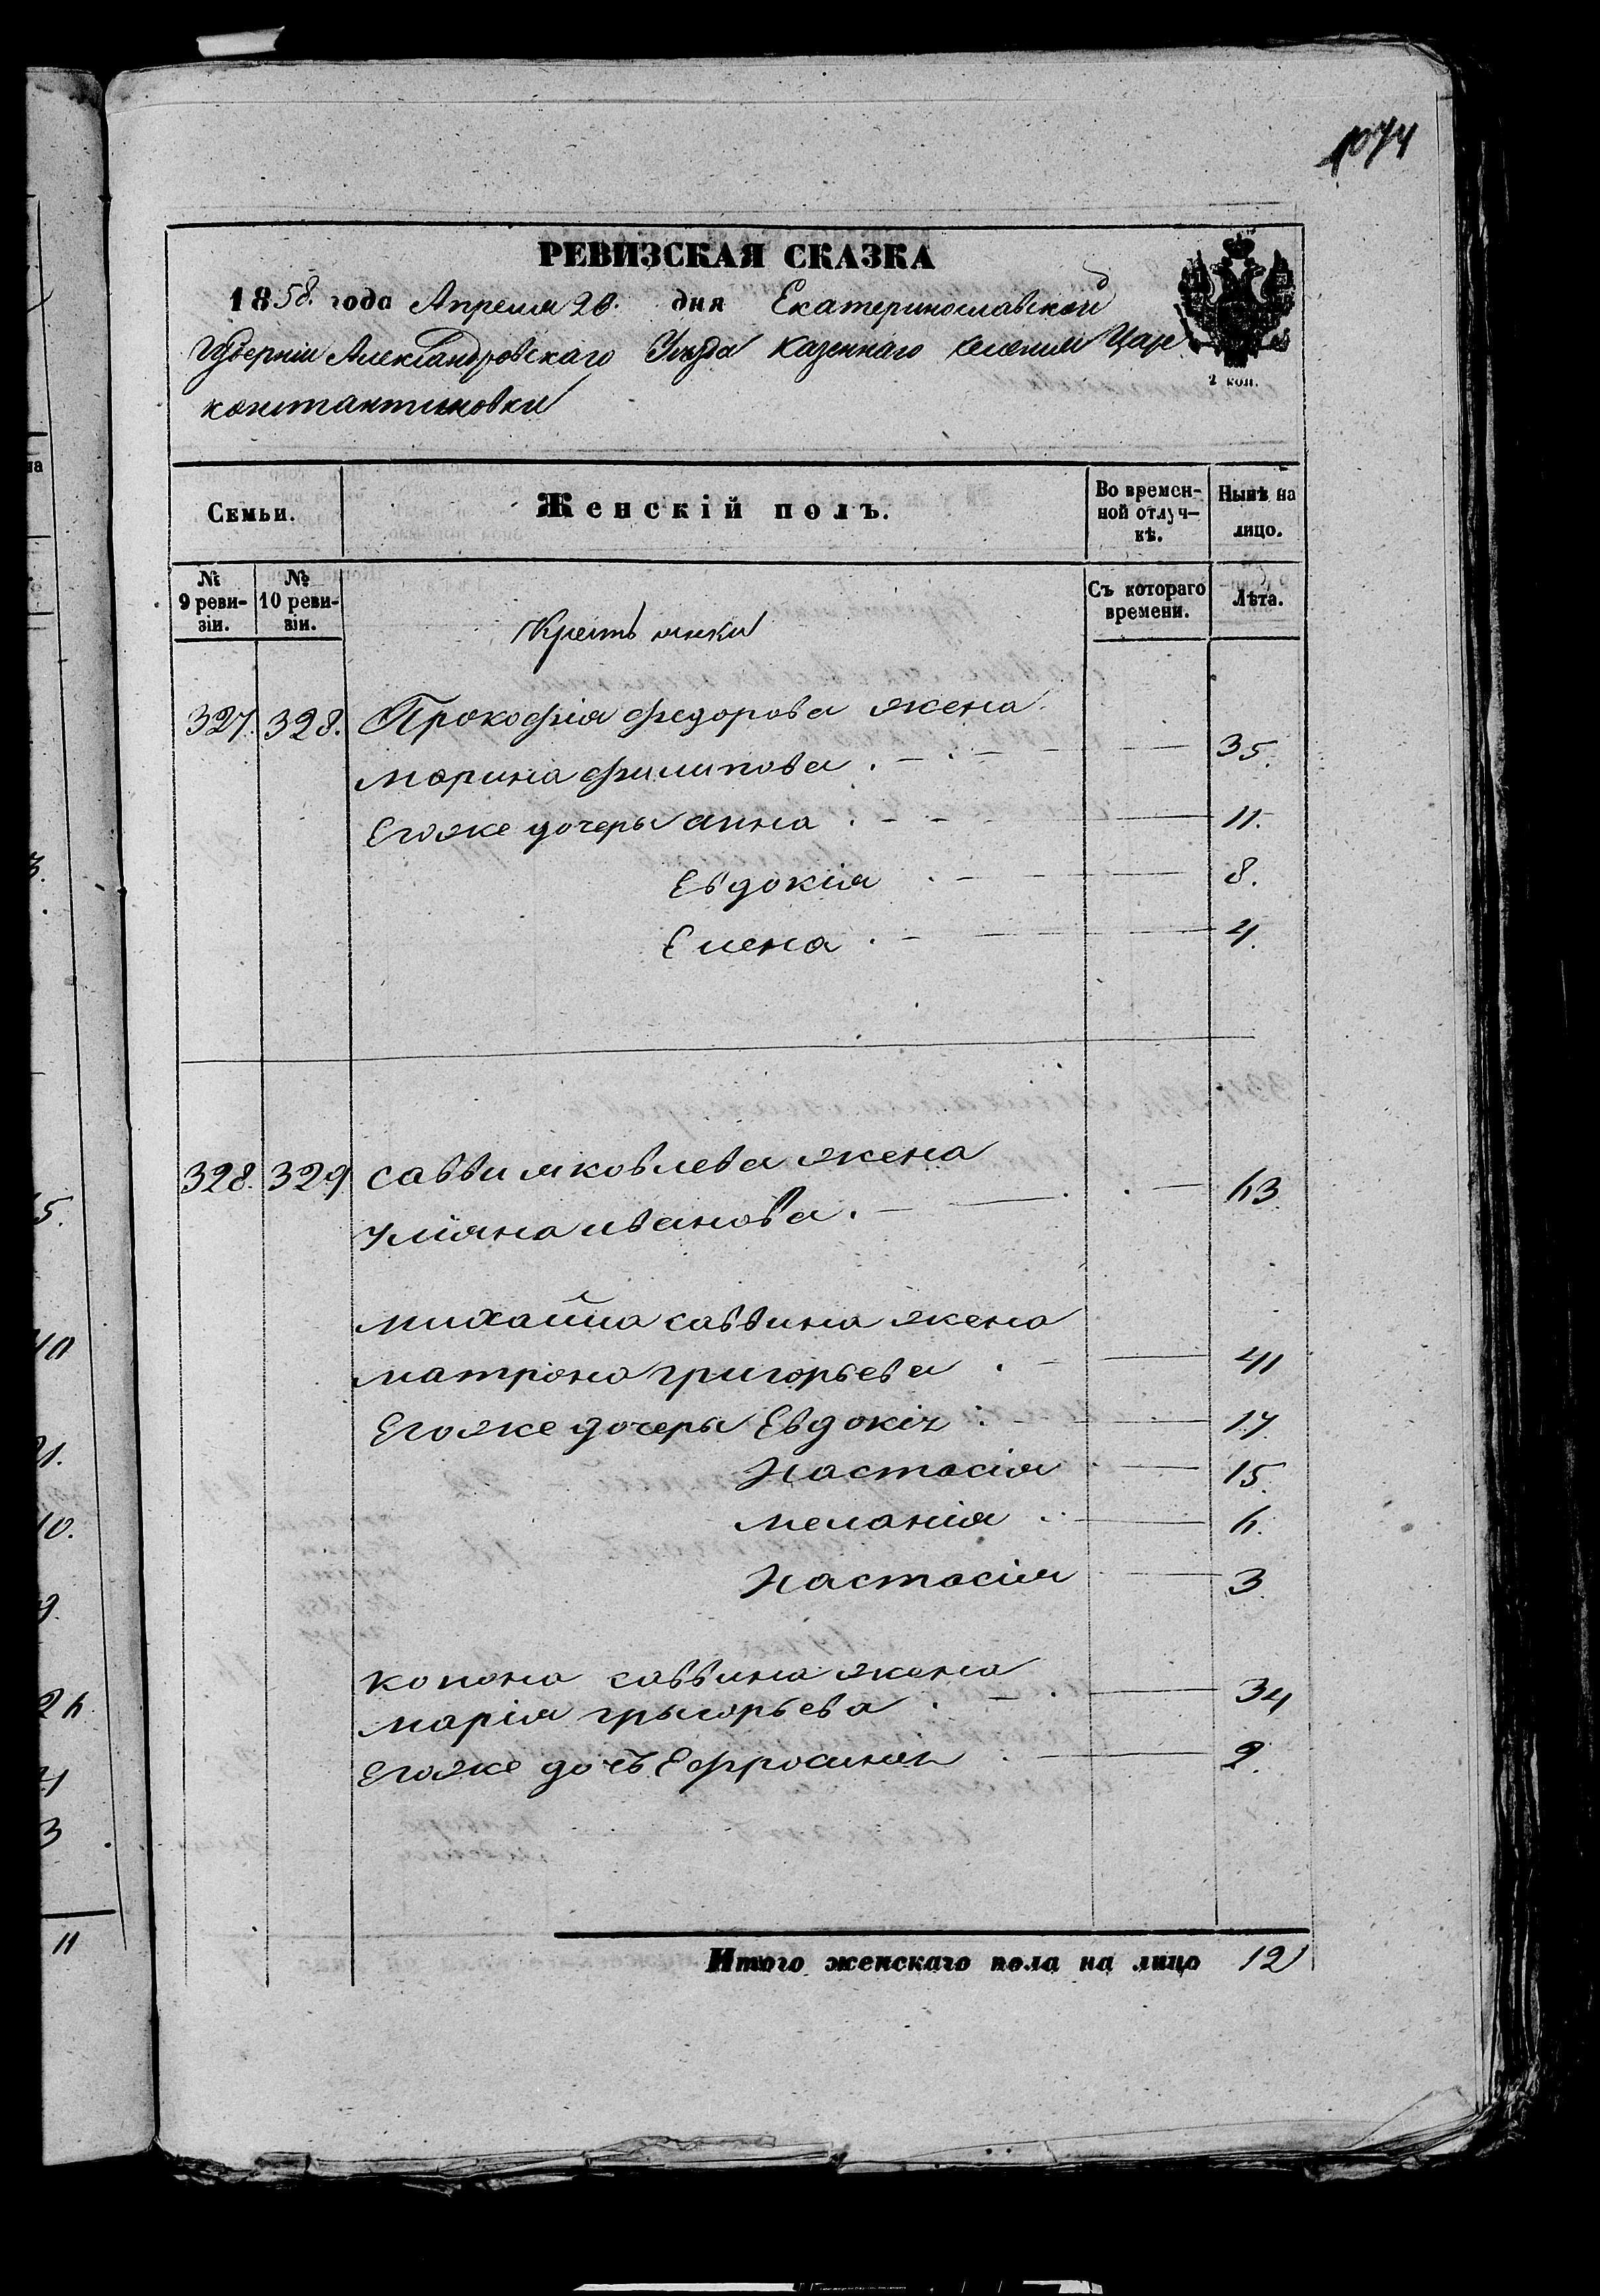 1074
РЕВИЗСКАЯ СКАЗКА
1858. года Апреля 20. дня Екатеринославской
Губерніи Александровскаго Уезда Казеннаго селения Царе
константиновки
2 коп.
Семьи. Женскій полъ. Во времен- Нынѣ на
ной отлуч- лицо.
кѣ.
№ № Съ котораго Лѣта.
9 реви- 10 реви- времени.
зіи. зіи.
Крестьянки
327. 328. Прокофія федорова жена
марина филипова . 35.
Егоже дочеры анна . 11.
Евдокія . 8.
Елена . 4.
328. 329 саввы яковлева жена
уліяна иванова . 63
михайла саввина жена
матрона григорьева . 41
Егоже дочеры Евдокія . 17
Настасія 15.
меланія . 6.
Настасія 3.
конона саввина жена
марія грыгорьева . 34
Егоже дочъ Ефросинія . 2.
Итого женскаго пола на лицо 12
3.
5.
40
21.
10.
9.
26
4
3
11